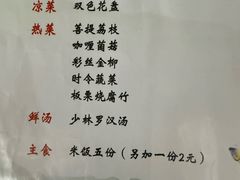 凉菜 双色花盘
热菜 菩提荔枝
咖喱菌菇
彩丝金柳
时令蔬菜
板栗烧腐竹
鲜汤 少林罗汉汤
主食 米饭五份（另加一份2元）